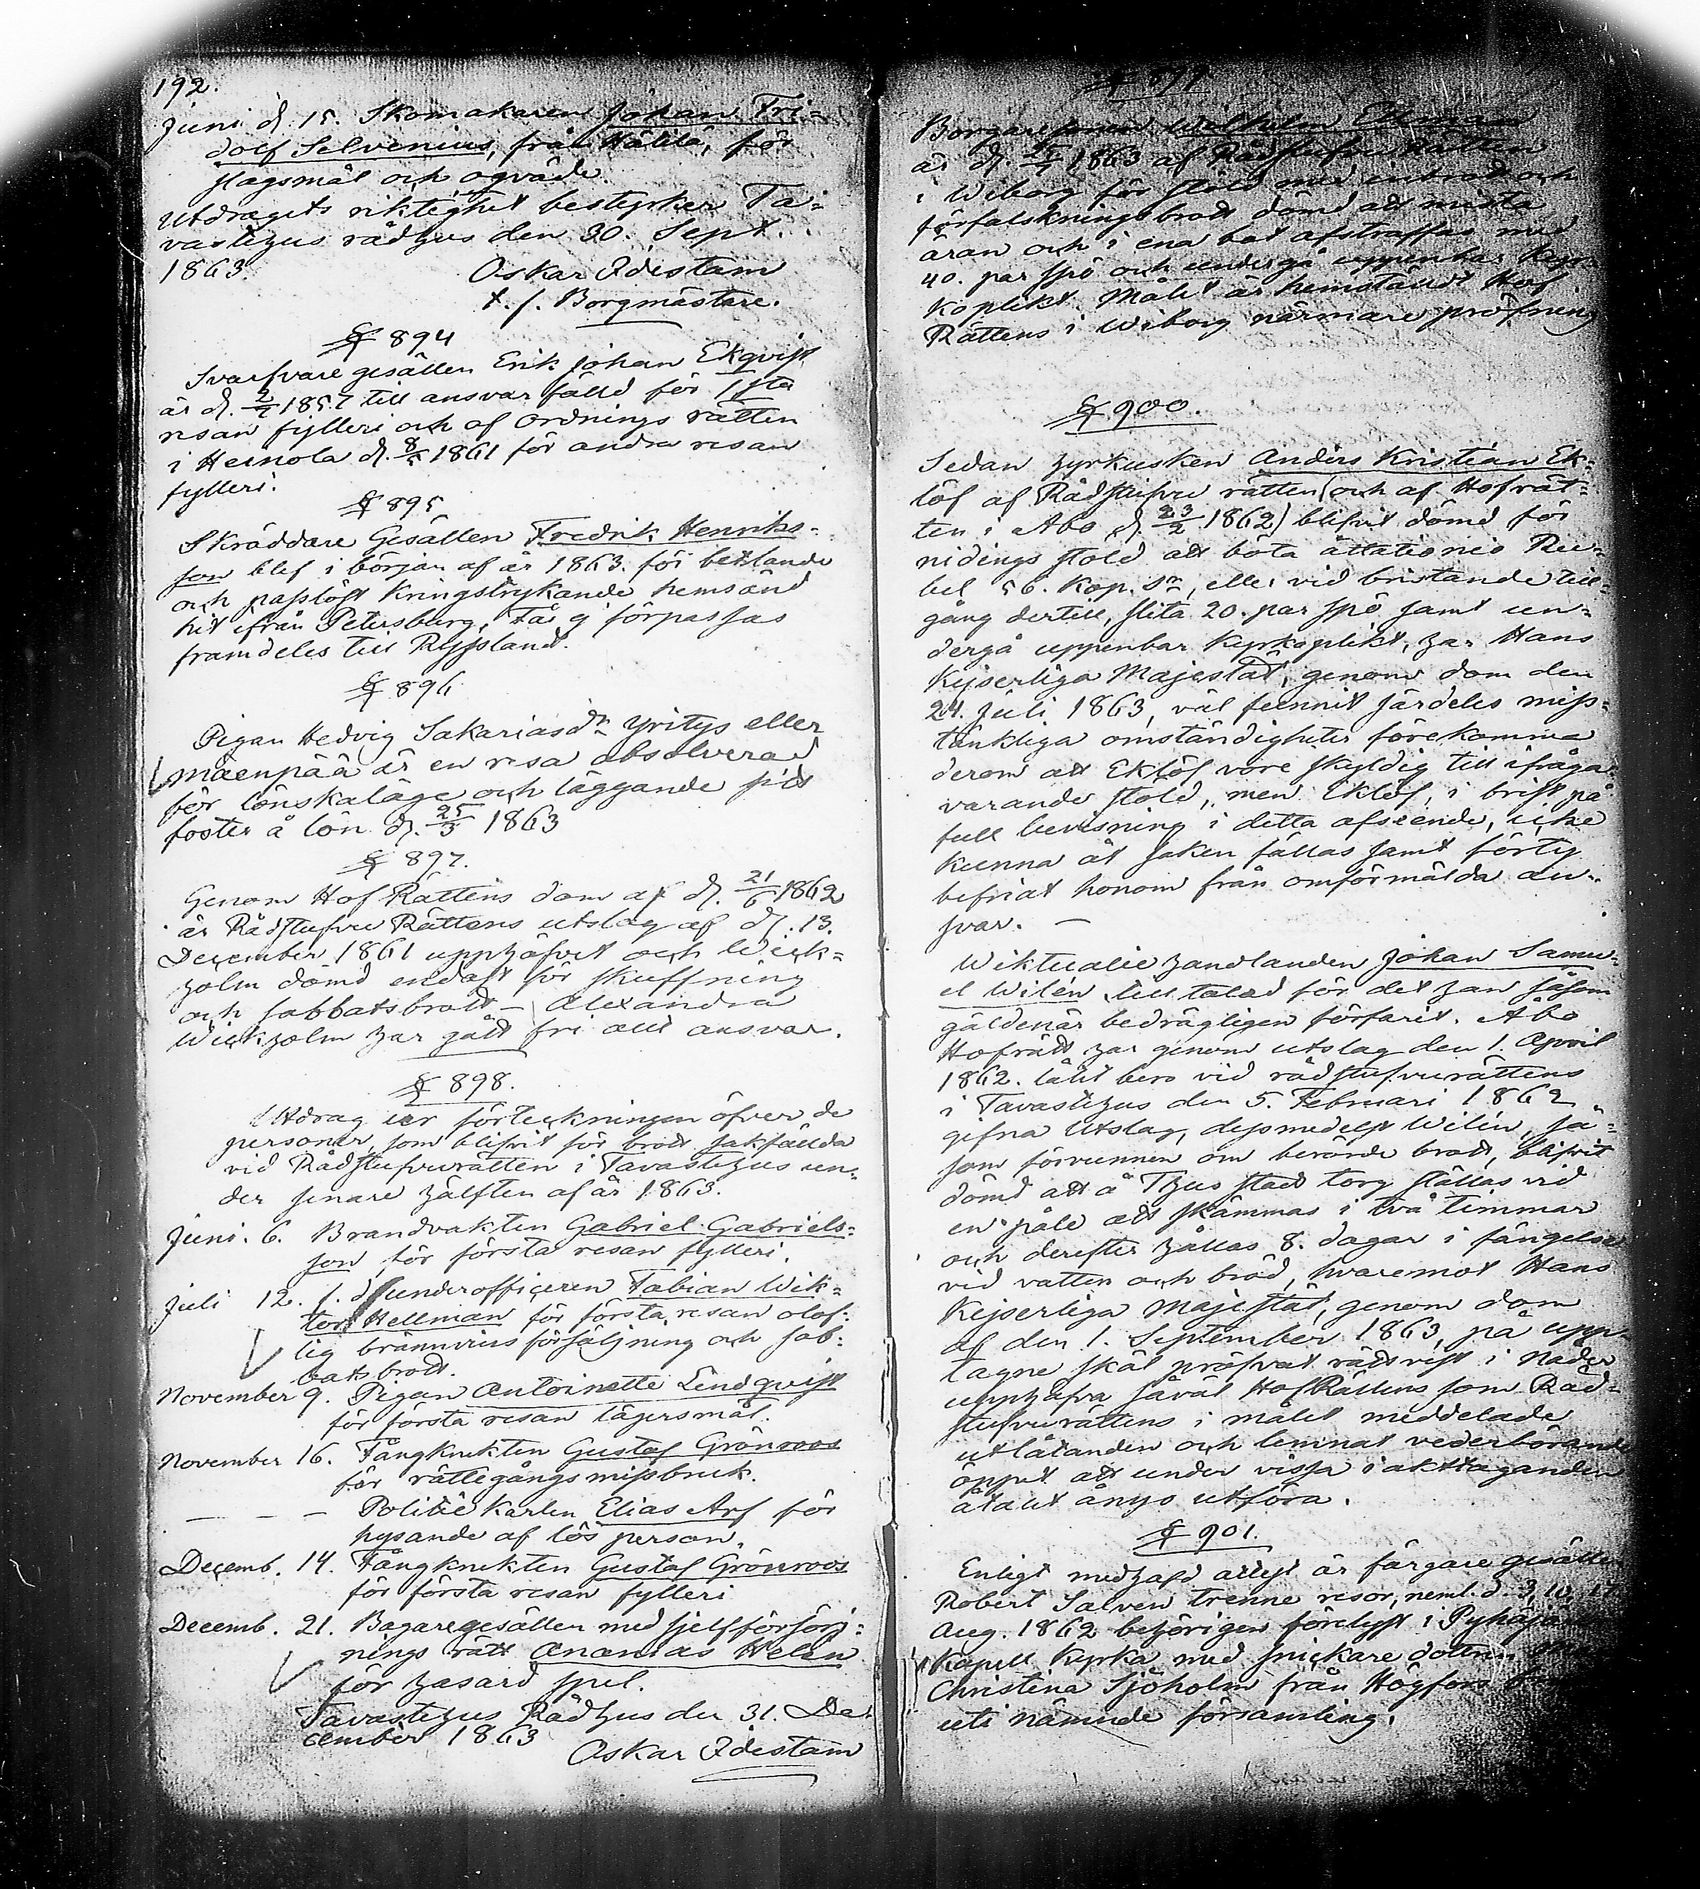 192.
Juni d. 15. Skomakaren Johan Fri-
dolf Selvenius, från Hätilä, för
slagsmål och oqväde.
Utdragets riktighet bestyrker Ta-
vastehus rådhus den 30. Sept.
1863.
Oskar Idestam
t. f. Borgmästare.
§ 894
Svarfvare gesällen Erik Johan Ekqvist
är d. 2/7 1857 till ansvar fälld för 1sta
resan fylleri och af Ordnings rätten
i Heinola d. 8/5 1861 för andra resan
fylleri.
§ 895
Skräddare Gesällen Fredrik Henriks-
son blef i början af år 1863. för betlande
och passlöst kringstrykande hemsänd
hit ifrån Petersburg, får ej förpassas
framdeles till Ryssland.
§ 896
Pigan Hedvig Sakariasdr Yritys eller
Mäenpää är en resa absolverad
för lönskaläge och läggande sitt
foster å lön d. 25/3 1863
§ 897.
Genom Hof Rättens dom af d. 21/6 1862
är Rådstufvu Rättens utslag af d. 13.
December 1861 upphäfvet och Wick-
holm dömd endast för skuffning
och sabbatsbrott – Alexandra
Wickholm har gått fri allt ansvar.
§ 898.
Utdrag ur förteckningen öfver de
personer, som blifvit för brott sakfällda
vid Rådstufvurätten i Tavastehus un-
der senare hälften af år 1863.
Juni. 6. Brandvakten Gabriel Gabriels-
son för första resan fylleri.
Juli 12. f. d. underofficeren Fabian Wik-
tor Hellman för första resan olof-
lig brännvins försäljning och sab-
batsbrott.
November 9. Pigan Antoinette Lindqvist
för första resan lägersmål.
November 16. Fångknekten Gustaf Grönroos
för rättegångs missbruk.
— — — Politie Karlen Elias Arf för
hysande af lös person.
Decemb. 14. Fångknekten Gustaf Grönroos
för första resan fylleri
Decemb. 21. Bagaregesällen med sjelfförsörj-
nings rätt Ananias Helin
för hasard spel.
Tavastehus Rådhus den 31. De-
cember 1863
Oskar Idestam
§ 899
Borgaresonen Wilhelm Ekman
är d. 1863 af Rådstufvu Rätten
i Wiborg för stöld med inbrott och
förfalskningsbrott dömd att mista
äran och i ena bot afstraffas med
40. par spö och undergå uppenbar kyr-
koplikt. Målet är hemstäldt Hof
Rättens i Wiborg närmare pröfning
§ 900.
Sedan hyrkusken Anders Kristian Ek-
löf af Rådstufvu rätten (och af Hofrät-
ten i Åbo d. 23/2 1862) blifvit dömd för
nidings stöld att böta åttationio Ru-
bel 56. Kop. Sr, eller vid bristande till-
gång dertill, slita 20. par spö samt un-
dergå uppenbar kyrkoplikt, har Hans
Kejserliga Majestät, genom dom den
24. Juli 1863, väl funnit särdeles miss-
tänkliga omständigheter förekomma
derom att Eklöf vore skyldig till ifråga-
varande stöld, men Eklöf, i brist på
full bevisning i detta afseende, icke
kunna åt saken fällas samt förty
befriat honom från omförmälda an-
svar. —
Wiktualie handlanden Johan Samu-
el Wilén tilltalad för det han såsom
gäldenär bedrägligen förfarit. Åbo
Hofrätt har genom utslag den 1. April
1862. låtit bero vid rådstufvurättens
i Tavastehus den 5. Februari 1862
gifna Utslag, dessmedelst Wilén, så-
som förvunnen om berörde brott, blifvit
dömd att å Thus stads torg ställas vid
en påle att skämmas i två timmar
och derefter hållas 8. dagar i fängelse
vid vatten och bröd, hvaremot Hans
Kejserliga Majestät, genom dom
af den 1. September 1863, på upp-
tagne skäl pröfvat rättvist i nåder
upphäfva såväl HofRättens som Råd-
stufvurättens i målet meddelade
utlåtanden och lemnat vederbörande
öppet att under vissa iakttaganden
åtalet ånyo utföra.
§ 901.
Enligt medhafd attest är färgare gesällen
Robert Salven trenne resor, neml. d. 3, 10, 17
Aug. 1862 behörigen förelyst i Pyhäjärvi
Kapell Kyrka med snickare dottren
Christina Sjöholm från Högfors
uti nämnde församling.